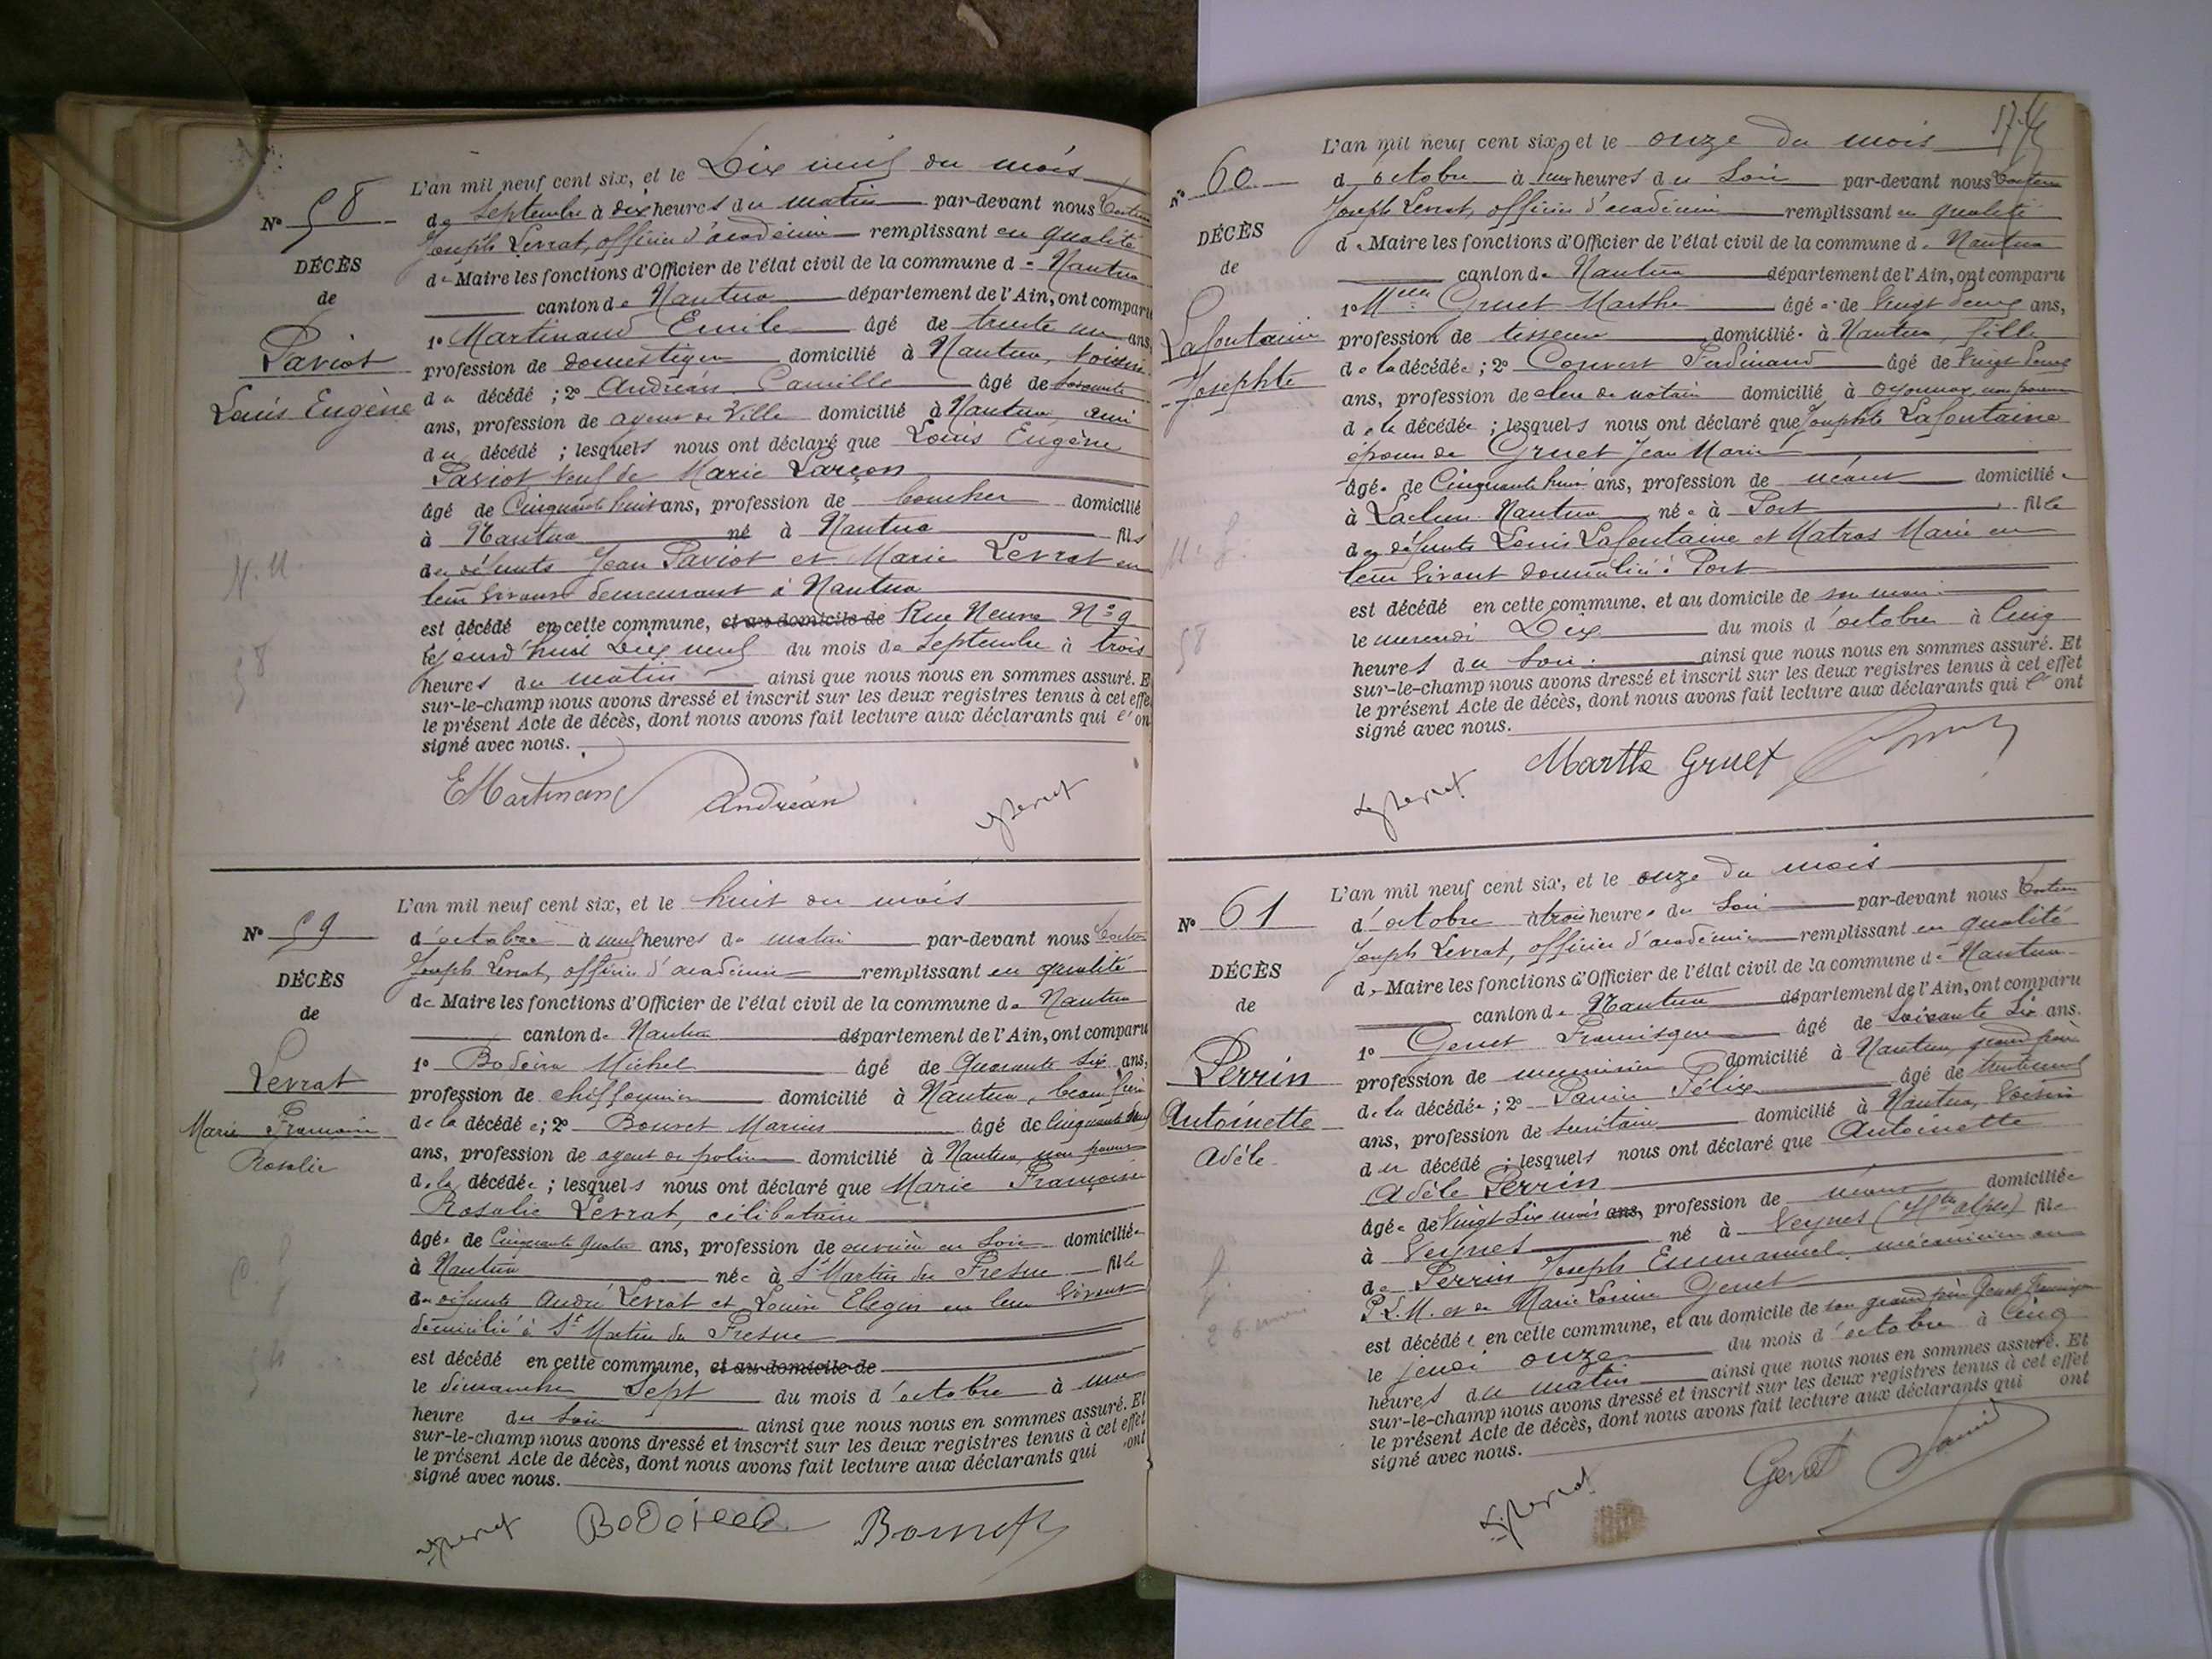 N° 58
DÉCÈS
de
Paviot
Louis Eugène
N. M.
58
L'an mil neuf cent six, et le Dix neuf du mois
de Septembre à dix heures du matin par-devant nous
Joseph Levrat, officier d'académie remplissant en qualité
de Maire les fonctions d'Officier de l'état civil de la commune de Nantua
canton de Nantua département de l'Ain, ont comparu
1° Martinand Emile âgé de trente un ans,
profession de domestique domicilié à Nantua, voisin
du décédé ; 2° Andréan Camille âgé de soixante
ans, profession de agent de Ville domicilié à Nantua, ami
du décédé ; lesquels nous ont déclaré que Louis Eugène
Paviot veuf de Marie Larçon
âgé de Cinquante huit ans, profession de boucher domicilié
à Nantua né à Nantua fils
des défunts Jean Paviot et Marie Levrat en
leur vivant demeurant à Nantua
est décédé en cette commune, et au domicile de Rue Neuve N° 9
le jourd'hui Dix neuf du mois de Septembre à trois
heures du matin ainsi que nous nous en sommes assuré. E
sur-le-champ nous avons dressé et inscrit sur les deux registres tenus à cet effe
le présent Acte de décès, dont nous avons fait lecture aux déclarants qui l'on
signé avec nous.
EMartinand Andréan JLevrat
N° 59
DÉCÈS
de
Levrat
Marie Francoise
Rosalie
54
L'an mil neuf cent six, et le huit du mois
d'octobre à neuf heures du matin par-devant nous
Joseph Levrat, officier d'académie remplissant en qualité
de Maire les fonctions d'Officier de l'état civil de la commune de Nantua
canton de Nantua département de l'Ain, ont comparu
1° Bodoira Michel âgé de Quarante six ans,
profession de chiffonnier domicilié à Nantua, beau frère
de la décédée ; 2° Bouvet Marius âgé de cinquante deux
ans, profession de agent de police domicilié à Nantua, non parent
de la décédée ; lesquels nous ont déclaré que Marie Françoise
Rosalie Levrat, célibataire
âgée de Cinquante quatre ans, profession de ouvrière en soie domiciliée
à Nantua née à St Martin du Fresne fille
des défunts André Levrat et Louise Elegin en leur vivant
domicilié à St Martin du Fresne
est décédé en cette commune, et au domicile de
le dimanche Sept du mois d'octobre à une
heure du soir ainsi que nous nous en sommes assuré. Et
sur-le-champ nous avons dressé et inscrit sur les deux registres tenus à cet effet
le présent Acte de décès, dont nous avons fait lecture aux déclarants qui ont
signé avec nous.
JLevrat Bouvet
N° 60
DÉCÈS
de
Lafontaine
Josephte
58
L'an mil neuf cent six, et le onze du mois
d'octobre à deux heures du soir par-devant nous
Joseph Levrat, officier d'académie remplissant en qualité
de Maire les fonctions d'Officier de l'état civil de la commune de Nantua
canton de Nantua département de l'Ain, ont comparu
1° Melle Gruet Marthe âgée de vingt deux ans,
profession de tisseuse domiciliée à Nantua, fille
de la décédée ; 2° Convert Ferdinand âgé de vingt deux
ans, profession de clerc de notaire domicilié à Oyonnax non parent
de la décédée ; lesquels nous ont déclaré que Josephte Lafontaine
épouse de Gruet Jean Marie
âgée de Cinquante huit ans, profession de néant domiciliée
à Lacluse Nantua née à Port fille
des défunts Louis Lafontaine et Matras Marie en
leur vivant domicilié à Port
est décédé en cette commune, et au domicile de son mari
le mercredi Dix du mois d'octobre à Cinq
heures du soir. ainsi que nous nous en sommes assuré. Et
sur-le-champ nous avons dressé et inscrit sur les deux registres tenus à cet effet
le présent Acte de décès, dont nous avons fait lecture aux déclarants qui l'ont
signé avec nous.
JLevrat Marthe Gruet
N° 61
DÉCÈS
de
Perrin
Antoinette
Adèle
L'an mil neuf cent six, et le onze du mois
d'octobre à trois heures du soir par-devant nous
Joseph Levrat, officier d'académie remplissant en qualité
de Maire les fonctions d'Officier de l'état civil de la commune de Nantua
canton de Nantua département de l'Ain, ont comparu
1° Genet Francisque âgé de soixante six ans.
profession de menuisier domicilié à Nantua, grand père
de la décédée ; 2° Félix âgé de trente neuf
ans, profession de domicilié à Nantua, voisin
du décédé ; lesquels nous ont déclaré que Antoinette
Adèle Perrin
âgée de vingt six mois ans, profession de néant domiciliée
à Veynes né à Veynes (Htes alpes) fille
de Perrin Joseph Emmanuel, mécanicien au
P. L. M. et de Marie Louise Genet
est décédée en cette commune, et au domicile de son grand père Genet Francisque
le jeudi onze du mois d'octobre à Cinq
heures du matin ainsi que nous nous en sommes assuré. Et
sur-le-champ nous avons dressé et inscrit sur les deux registres tenus à cet effet
le présent Acte de décès, dont nous avons fait lecture aux déclarants qui ont
signé avec nous.
JLevrat Genet